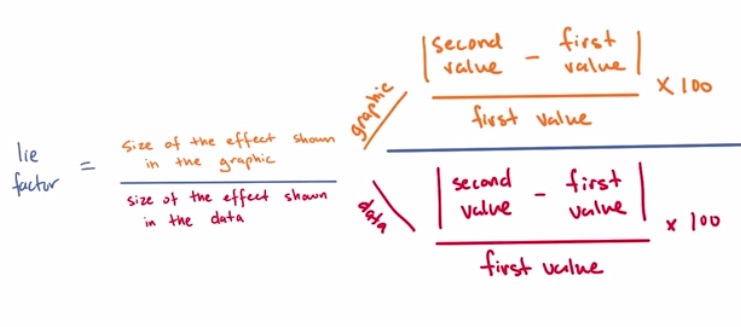 lie factor = size of the effect shown in the graphic / size of the effect shown in the data
graphic
|second value - first value| / first value × 100
data
|second value - first value| / first value × 100